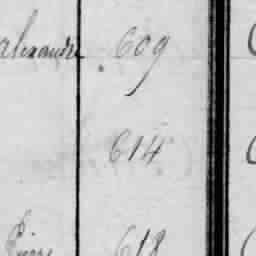 alexandre 609
614
Pierre 618